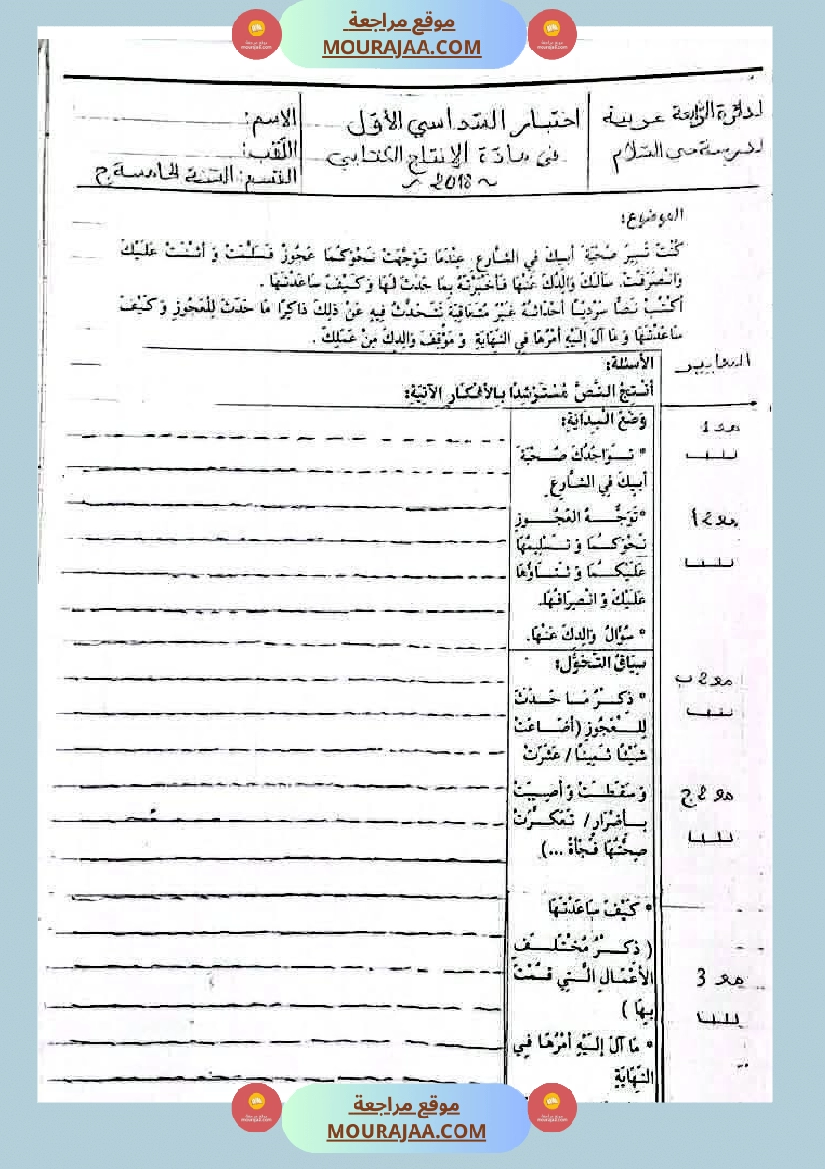 موقع مراجعة
MOURAJAA.COM
الدائرة الرابعة عربية
اختبار السداسي الأوّل
الاسم:
في مادّة الإنتاج الكتابي
اللّقب:
~ 2018 ~
القسم: السّنة الخامسة ج
الموضوع:
كُنْتَ تَسِيرُ صُحْبَةَ أَبِيكَ فِي الشَّارِعِ عِنْدَمَا تَوَجَّهَتْ نَحْوَكُمَا عَجُوزٌ فَسَلَّمَتْ وَ أَثْنَتْ عَلَيْكَ
وَانْصَرَفَتْ. سَأَلَكَ وَالِدُكَ عَنْهَا فَأَخْبَرْتَهُ بِمَا حَدَثَ لَهَا وَ كَيْفَ سَاعَدْتَهَا .
أُكْتُبْ نَصًّا سَرْدِيًّا أَحْدَاثُهُ غَيْرُ مُتَعَاقِبَةٍ تَتَحَدَّثُ فِيهِ عَنْ ذَلِكَ ذَاكِرًا مَا حَدَثَ لِلْعَجُوزِ وَ كَيْفَ
سَاعَدْتَهَا وَ مَا آلَ إِلَيْهِ أَمْرُهَا فِي النِّهَايَةِ وَ مَوْقِفَ وَالِدِكَ مِنْ عَمَلِكَ .
المعايير
الأسئلة:
أُنْتِجُ النَّصَّ مُسْتَرْشِدًا بِالأَفْكَارِ الآتِيَةِ:
وَضْعُ الْبِدَايَةِ:
مع 1
* تَوَاجُدُكَ صُحْبَةَ
أَبِيكَ فِي الشَّارِعِ
* تَوَجُّهُ الْعَجُوزِ
مع 2 أ
نَحْوَكُمَا وَ تَسْلِيمُهَا
عَلَيْكُمَا وَ ثَنَاؤُهَا
عَلَيْكَ وَ انْصِرَافُهَا.
* سُؤَالُ وَالِدِكَ عَنْهَا.
سِيَاقُ التَّحَوُّلِ:
مع 2 ب
* ذِكْرُ مَا حَدَثَ
لِلْعَجُوزِ (أَضَاعَتْ
شَيْئًا ثَمِينًا / عَثَرَتْ
وَ سَقَطَتْ وَ أُصِيبَتْ
مع 2 ج
بِأَضْرَارٍ / تَعَكَّرَتْ
صِحَّتُهَا فَجْأَةً ...)
* كَيْفَ سَاعَدْتَهَا
( ذِكْرُ مُخْتَلَفِ
الأَعْمَالِ الَّتِي قُمْتَ
مع 3
بِهَا )
* مَا آلَ إِلَيْهِ أَمْرُهَا فِي
النِّهَايَةِ
موقع مراجعة
MOURAJAA.COM